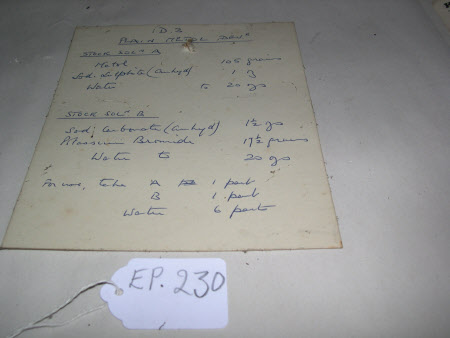 I.D.2
PLAIN METOL DEVR
STOCK SOLN A
Metol 105 grains
Sod. Sulphite (Anhyd) 1 oz
Water to 20 ozs
STOCK SOLN B
Sod. Carbonate (Anhyd) 1½ ozs
Potassium Bromide 17½ grains
Water to 20 ozs
For use, take A 1 part
B 1 part
Water 6 parts
EP. 230